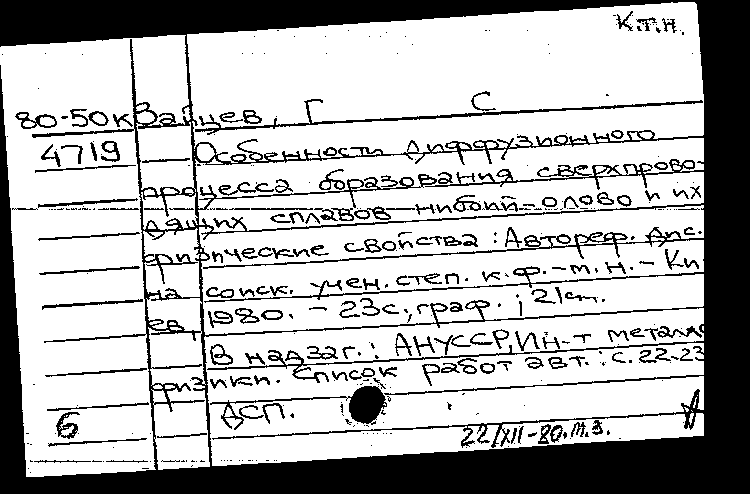 К.т.н.
80-50к Зайцев, Г С
4719 Особенности диффузионного
процесса образования сверхпрово-
дящих сплавов ниобий-олово и их
физические свойства : Автореф. дис.
на соиск. учен. степ. к.ф.-м.н. - Ки-
ев, 1980. - 23с., граф. ; 21см.
В надзаг.: АНУССР, Ин-т металло
физики. Список работ авт.: с. 22-23
6 ДСП.
22/XII-80. М.З.